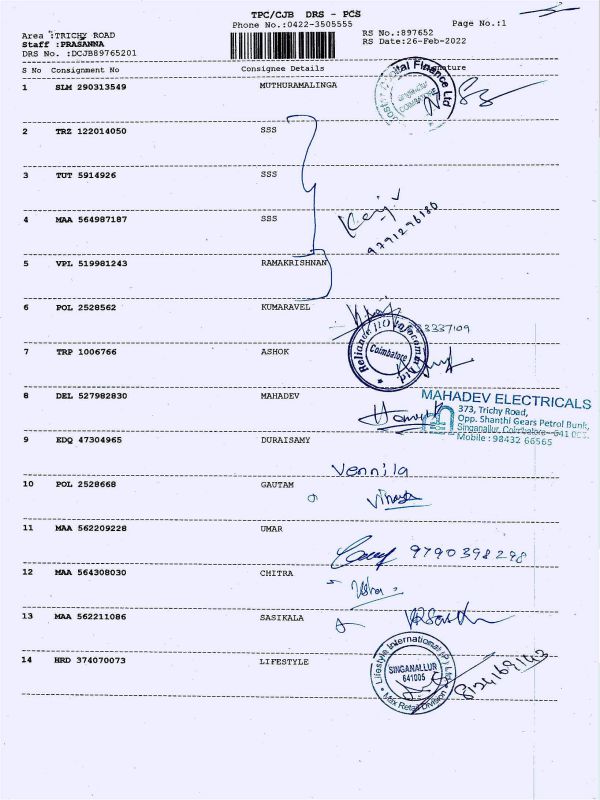 TPC/CJB DRS - PCS
Phone No.:0422-3505555
Page No.:1
Area :TRICHY ROAD
Staff :PRASANNA
DRS No. :DCJB89765201
RS No.:897652
RS Date:26-Feb-2022
S No Consignment No Consignee Details Signature
1 SLM 290313549 MUTHURAMALINGA
Digital Finance Ltd
COIMBATORE
2 TRZ 122014050 SSS
3 TUT 5914926 SSS
4 MAA 564987187 SSS
9791276180
5 VPL 519981243 RAMAKRISHNAN
6 POL 2528562 KUMARAVEL
83337109
Reliance JIO Infocomm Ltd.
Coimbatore
7 TRP 1006766 ASHOK
8 DEL 527982830 MAHADEV
MAHADEV ELECTRICALS
373, Trichy Road,
Opp. Shanthi Gears Petrol Bunk,
Singanallur, Coimbatore - 641 005.
Mobile : 98432 66565
9 EDQ 47304965 DURAISAMY
Vennila
10 POL 2528668 GAUTAM
11 MAA 562209228 UMAR
9790398298
12 MAA 564308030 CHITRA
Usha
13 MAA 562211086 SASIKALA
14 HRD 374070073 LIFESTYLE
Lifestyle International (P) Ltd
SINGANALLUR
641005
Max Retail Division
8124169143